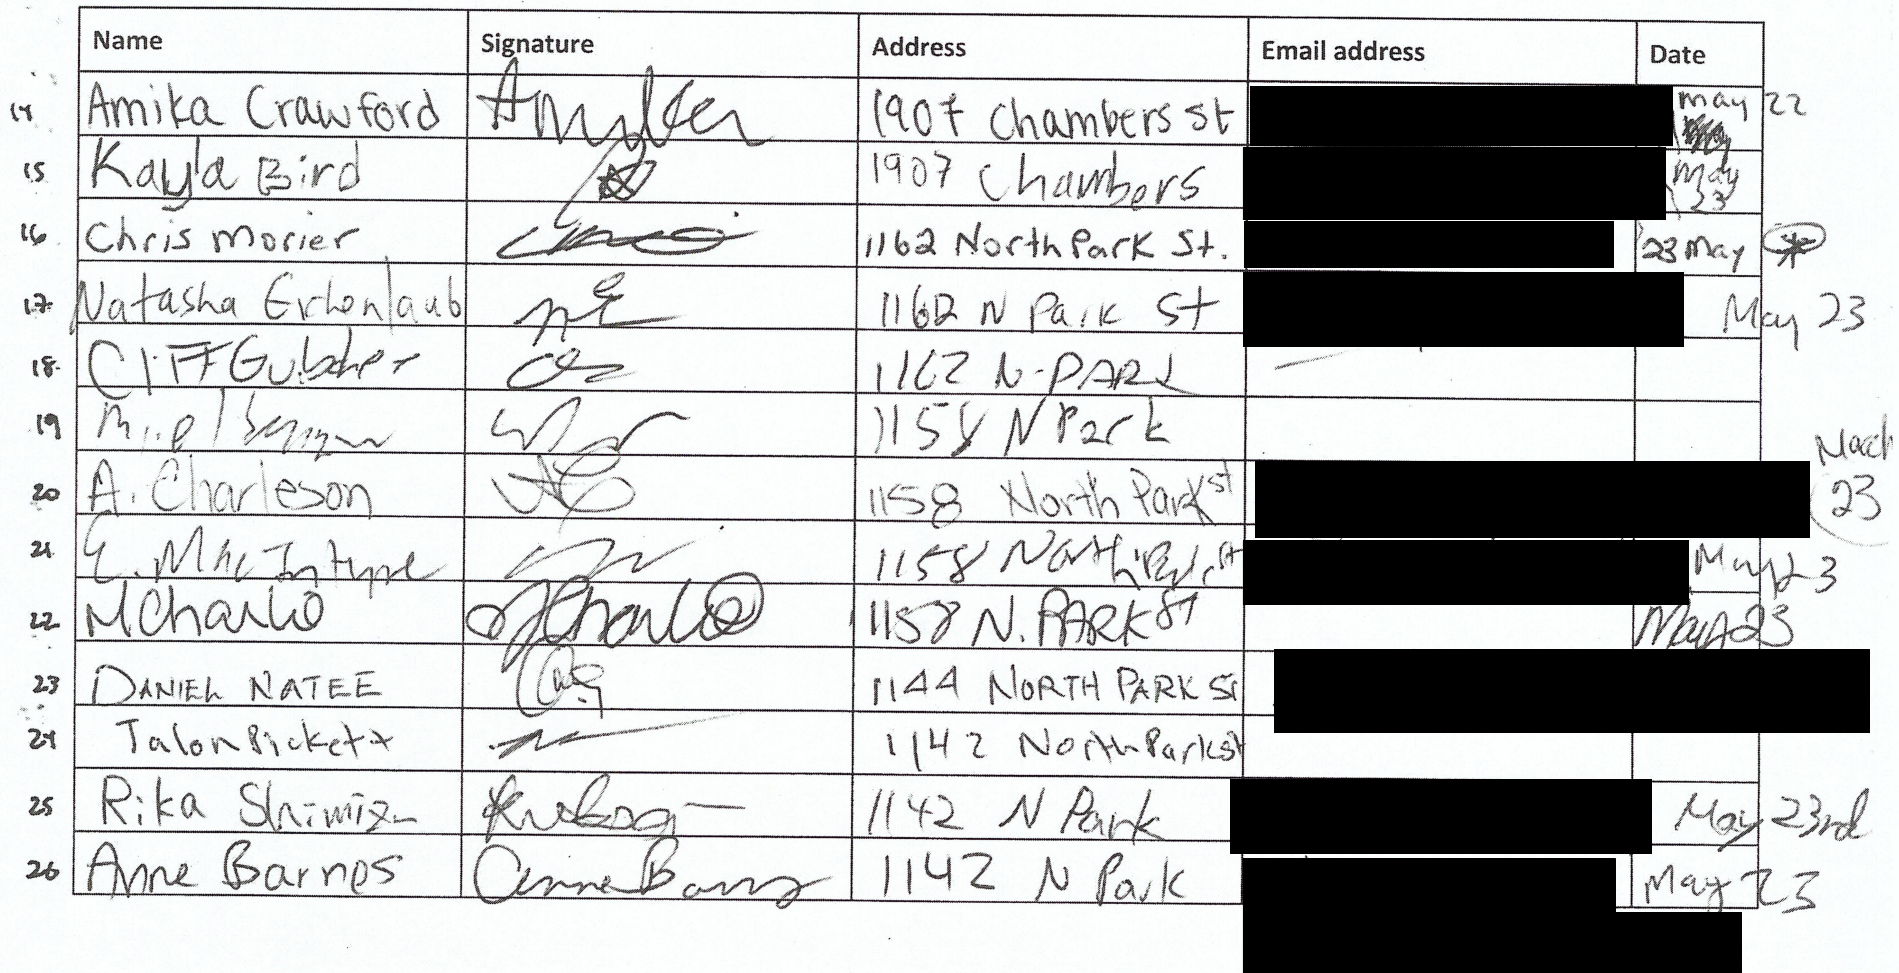 Name Signature Address Email address Date
14 Amika Crawford 1907 Chambers St May 22
15 Kayla Bird 1907 Chambers May 23
16 Chris Morier 1162 North Park St. 23 May
17 Natasha 1162 N Park St May 23
18 Cliff 1162 N-PARK
19 1158 N Park
20 A. Charleson 1158 North Park St March 23
21 E. MacIntyre 1158 North Park St May 23
22 1158 N. PARK ST May 23
23 DANIEL NATEE 1144 NORTH PARK St
24 Talon Pickett 1142 North Park st
25 Rika Shimizu 1142 N Park May 23rd
26 Anne Barnes Anne Barnes 1142 N Park May 23